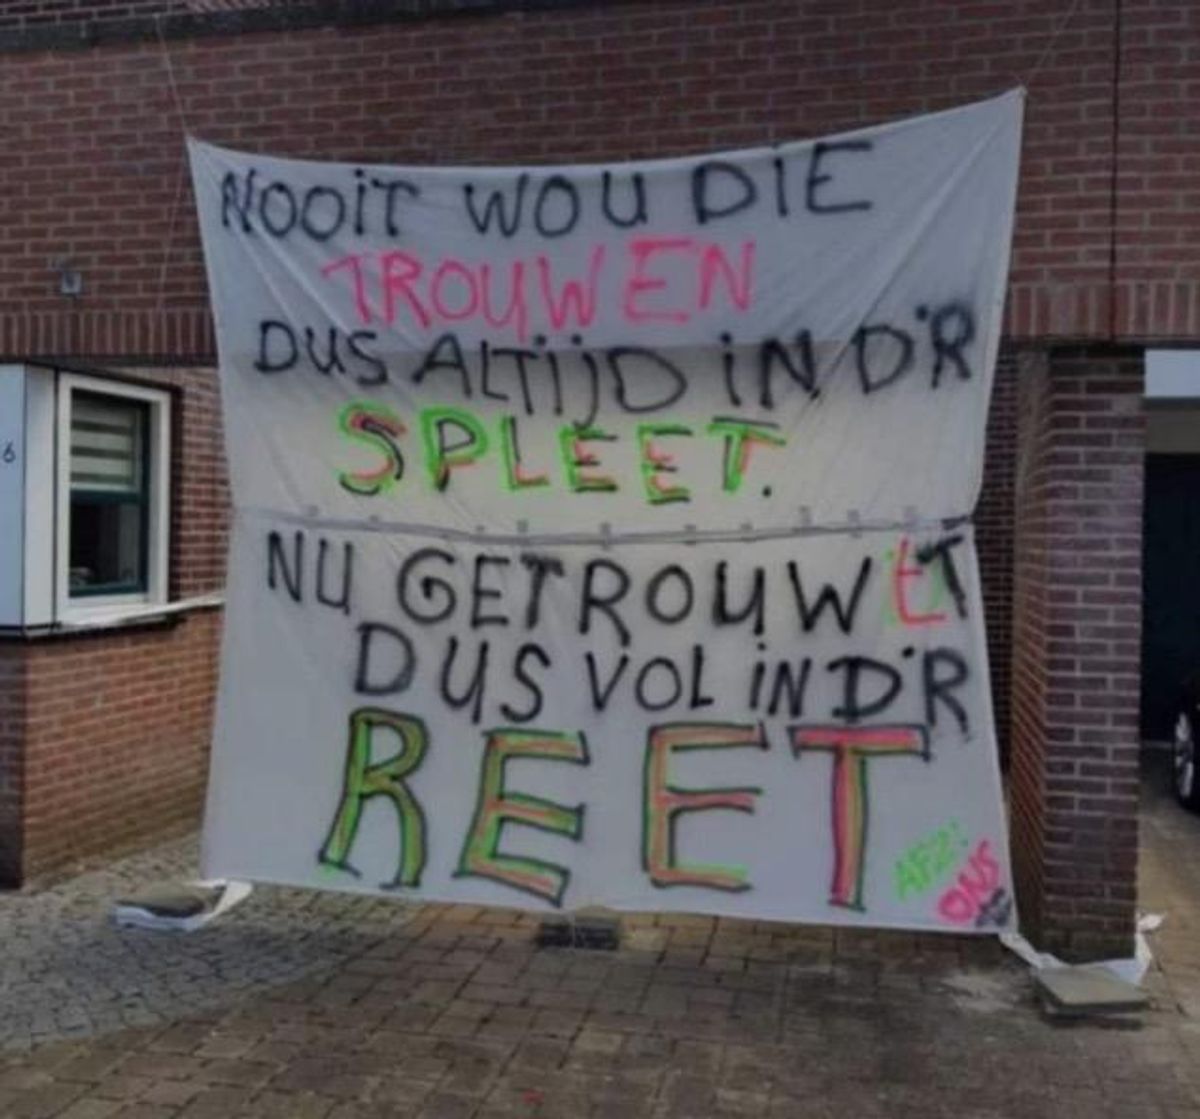 NOOIT WOU DIE
TROUWEN
DUS ALTIJD IN D'R
SPLEET.
NU GETROUWT
DUS VOL IN D'R
REET
AFZ:
ONS
6